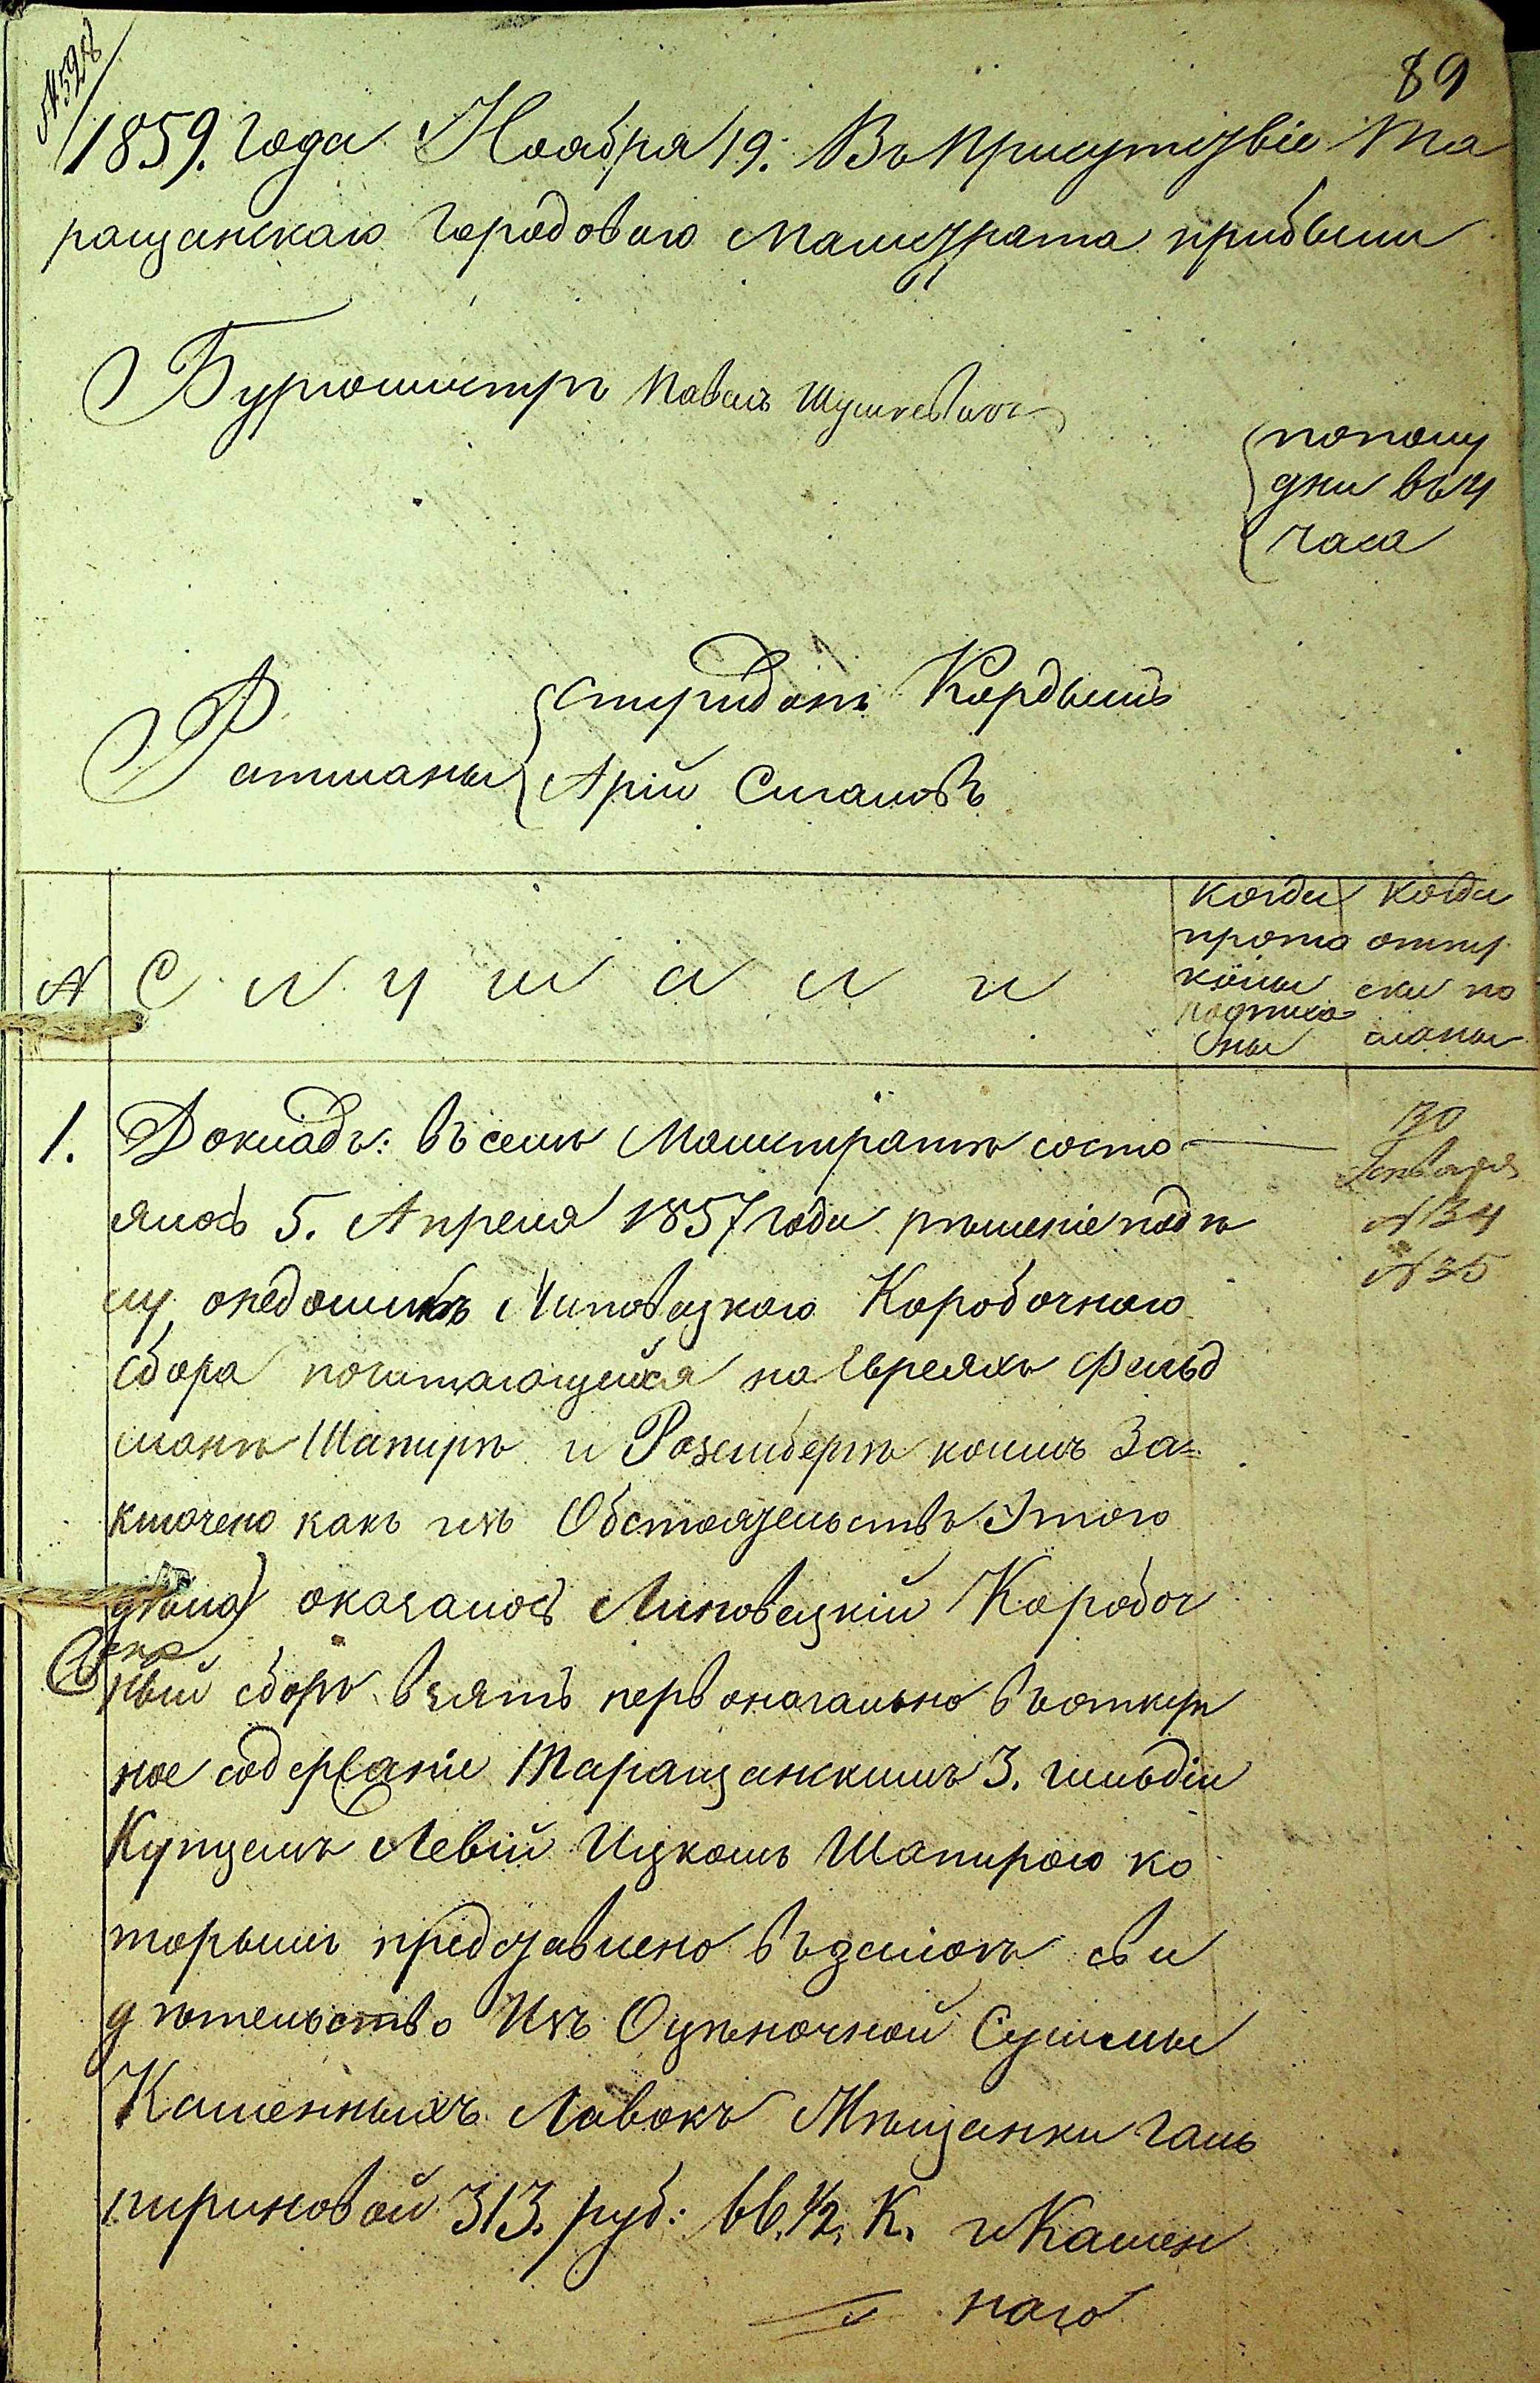 №5928
89
1859. года Ноября 19. Въ Присутствіе Та
ращанскаго Городоваго Магистрата прибыли
Бургомистръ Павелъ Шушкевичъ
пополу
дни въ 4
часа
Ратманы
Спиридонъ Кордышъ
Арій Сигаловъ
№
Слушали
Когда
прото
колы
подписа
ны
Когда
отпу
ски по
сланы
1. Докладъ: въ семъ Магистратѣ состо
ялось 5. Апреля 1857 года рѣшеніе подѣ
лу онедоимкѣ Липовецкаго Коробочнаго
сбора почитающейся на Евреяхъ Фельд
манѣ Шапирѣ и Розенбергѣ коимъ За=
ключено какъ изъ Обстоятельствъ Этого
дѣла оказалось Липовецкій Коробоч
ный сборъ взятъ первоначально въ откуп
ное содержаніе Таращанскимъ 3. гильдіи
Купцемъ Левій Ицкомъ Шапирою ко
торымъ представлено възалогъ сви
дѣтельство Изъ Оцѣночной Суммы
Каменныхъ Лавокъ Мѣщанки Галь
периновой 313. руб: 66.½. К. и Камен
наго
30
Генваря
№34
№35